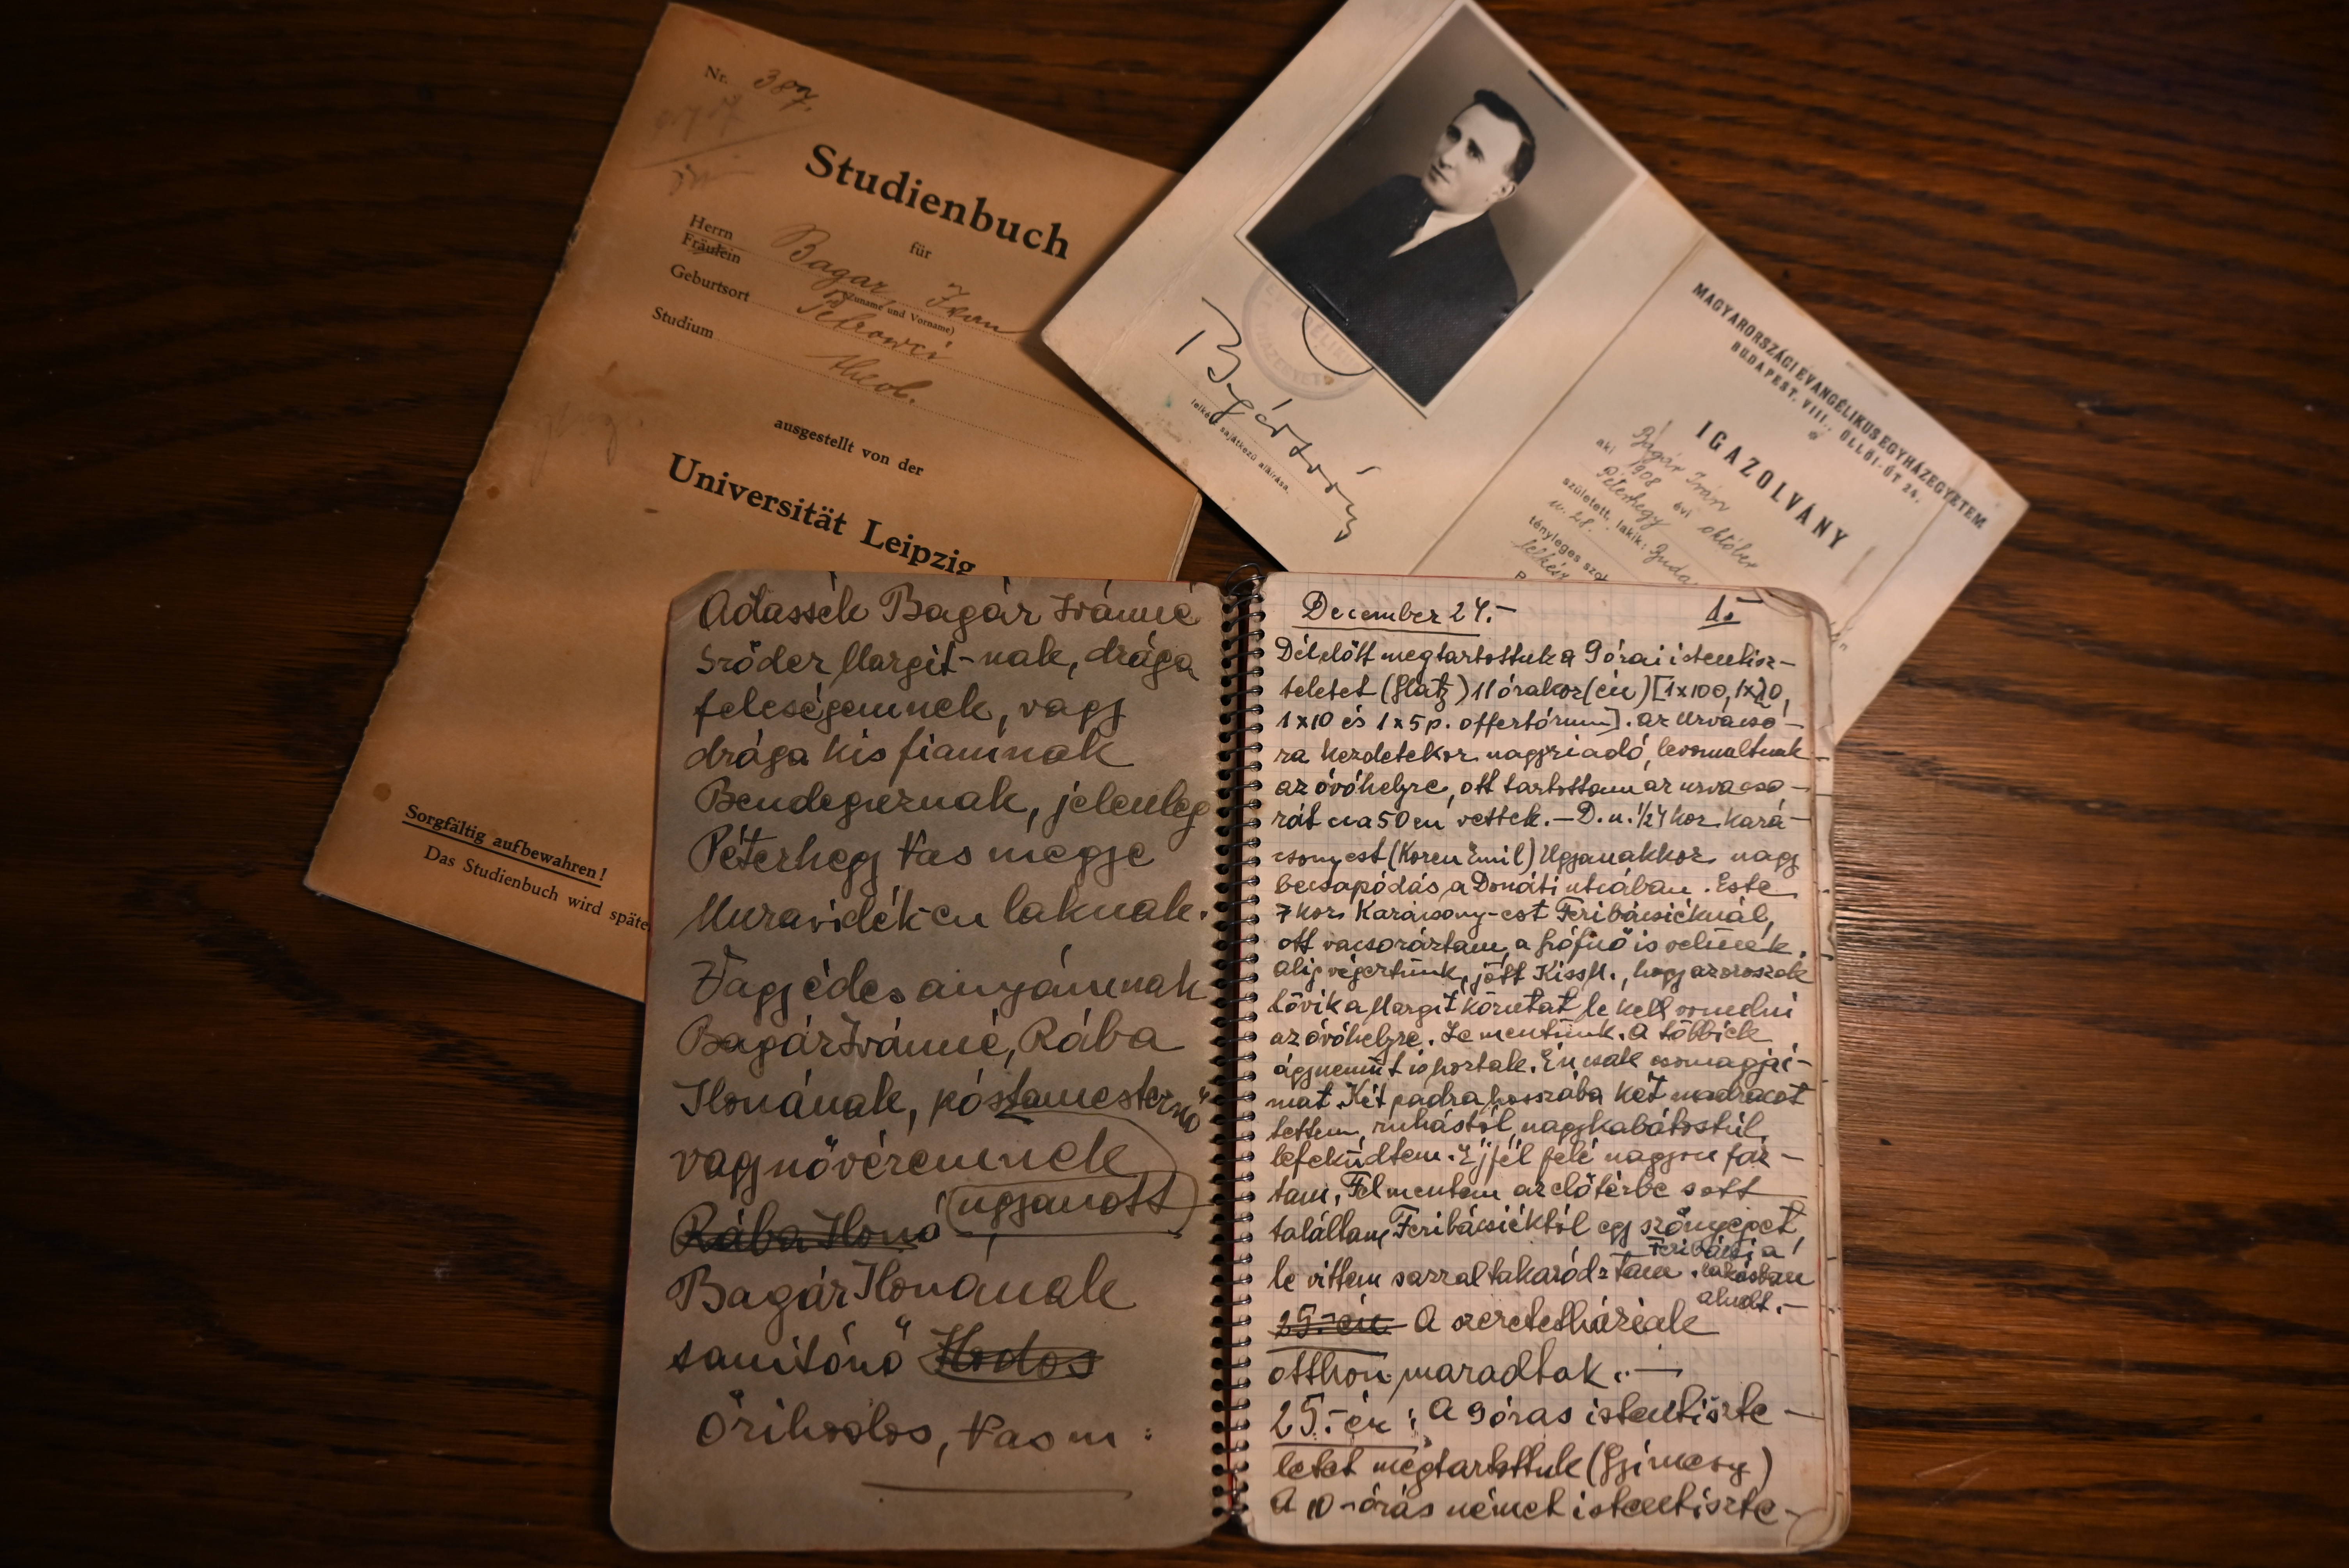 Nr. 387.
Studienbuch
für
Herrn
Fräulein
Bagar, Ivan
(Zuname und Vorname)
Geburtsort Petrowci
Studium theol.
ausgestellt von der
Universität Leipzig
Sorgfältig aufbewahren!
Das Studienbuch wird späte
Bagár Iván
lelkész sajátkezű aláírása.
MAGYARORSZÁGI EVANGÉLIKUS EGYHÁZEGYETEM
BUDAPEST, VIII., ÜLLŐI-ÚT 24.
IGAZOLVÁNY
Bagár Iván
aki 1908 évi október
Péterhegy
született, lakik: Buda
u. 28.
tényleges szol
lelkész
Adassék Bagár Ivánné
Sződer Margit-nak, drága
feleségemnek, vagy
drága kis fiamnak
Bendegúznak, jelenleg
Péterhegy Vas megye
Muravidék-en laknak.
Vagy édes anyámnak
Bagár Ivánné, Rába
Ilonának, póstamesternő
vagy nővéremnek
(ugyanott)
Rába Ilona
Bagár Ilonának
tanítónő Hodos
Őrihodos, Vas m:
December 24.- 1.-
Délelőtt megtartottuk a 9 órai istentisz-
teletet (Glatz) 11 órakor (én) [1x100, 1x20,
1x10 és 1x5 p. offertórium]. Az Úrvacso-
ra kezdetekor nagyriadó, levonultunk
az óvóhelyre, ott tartottam az úrvacso-
rát cca 50 en vettek. - D.u. 1/2 4 kor kará-
csonyest (Koren Emil) Ugyanakkor nagy
becsapódás a Donáti utcában. Este
7 kor Karácsony-est Feribácsiéknál,
ott vacsoráztam, a grófnő is velünk.
Alig végeztünk, jött Kiss M., hogy az oroszok
lövik a Margit körutat le kell vonulni
az óvóhelyre. Le mentünk. A többiek
ágyneműt is hoztak. Én csak csomagjai-
mat. Két padra hosszába két madracot
tettem, ruhástól, nagykabátostúl
lefeküdtem. Éjfél felé nagyon fáz-
tam, Felmentem az előtérbe s ott
találtam Feribácsiéktól egy szőnyeget,
le vittem s azzal takarództam. Feribácsi a
lakásban
aludt.-
25.-én A szeretetháziak
otthon maradtak.-
25.-én: A 9 órás istentiszte-
letet megtartottuk (Gyimesy)
A 10-órás német istentiszte-